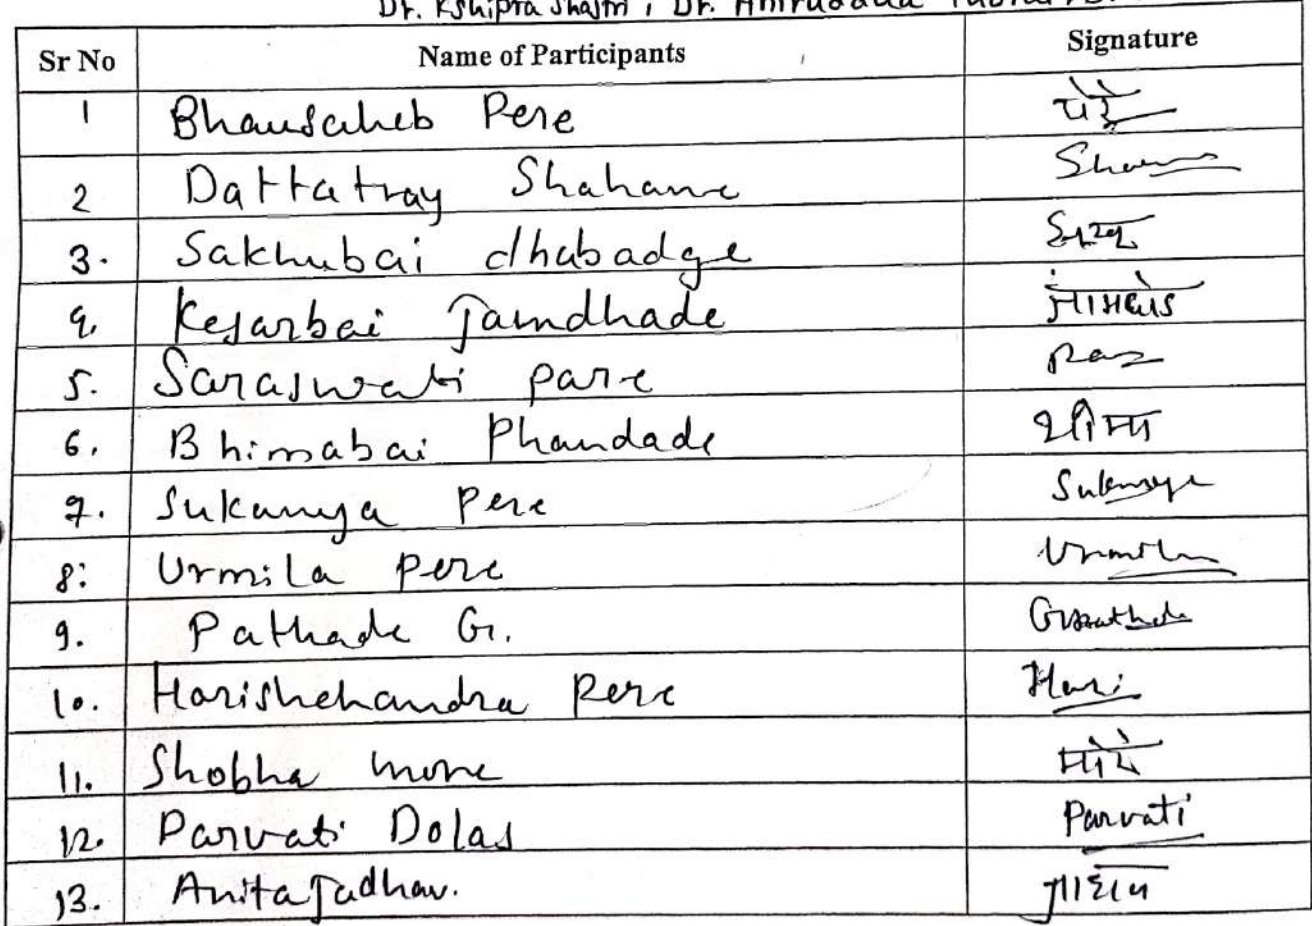 Dr. Kshipra Shastri, Dr. Aniruddha
Sr No Name of Participants Signature
1 Bhausaheb Pere पेरे
2 Dattatray Shahane
3. Sakhubai dhabadge
4. Kesarbai Jamdhade
5. Saraswati pare
6. Bhimabai Phandade भीमा
7. Sukanya Pere Sukanya
8: Urmila pere Urmila
9. Pathade G. GPathade
10. Harishchandra Pere Hari
11. Shobha more मोरे
12. Parvati Dolas Parvati
13. Anita Jadhav. जाधव